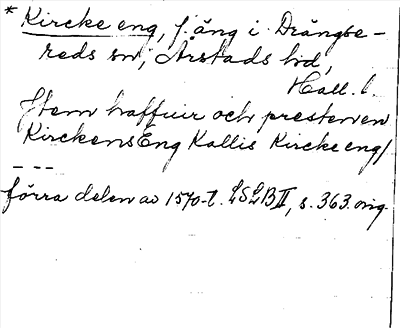 * Kircke eng, f. äng i Drängse-
reds sn, Årstads hd,
Hall. l.
Item haffuir och presten en
Kirckens Eng Kallis Kircke eng/
---
förra delen av 1570-t. LSLB II, s. 363. orig.